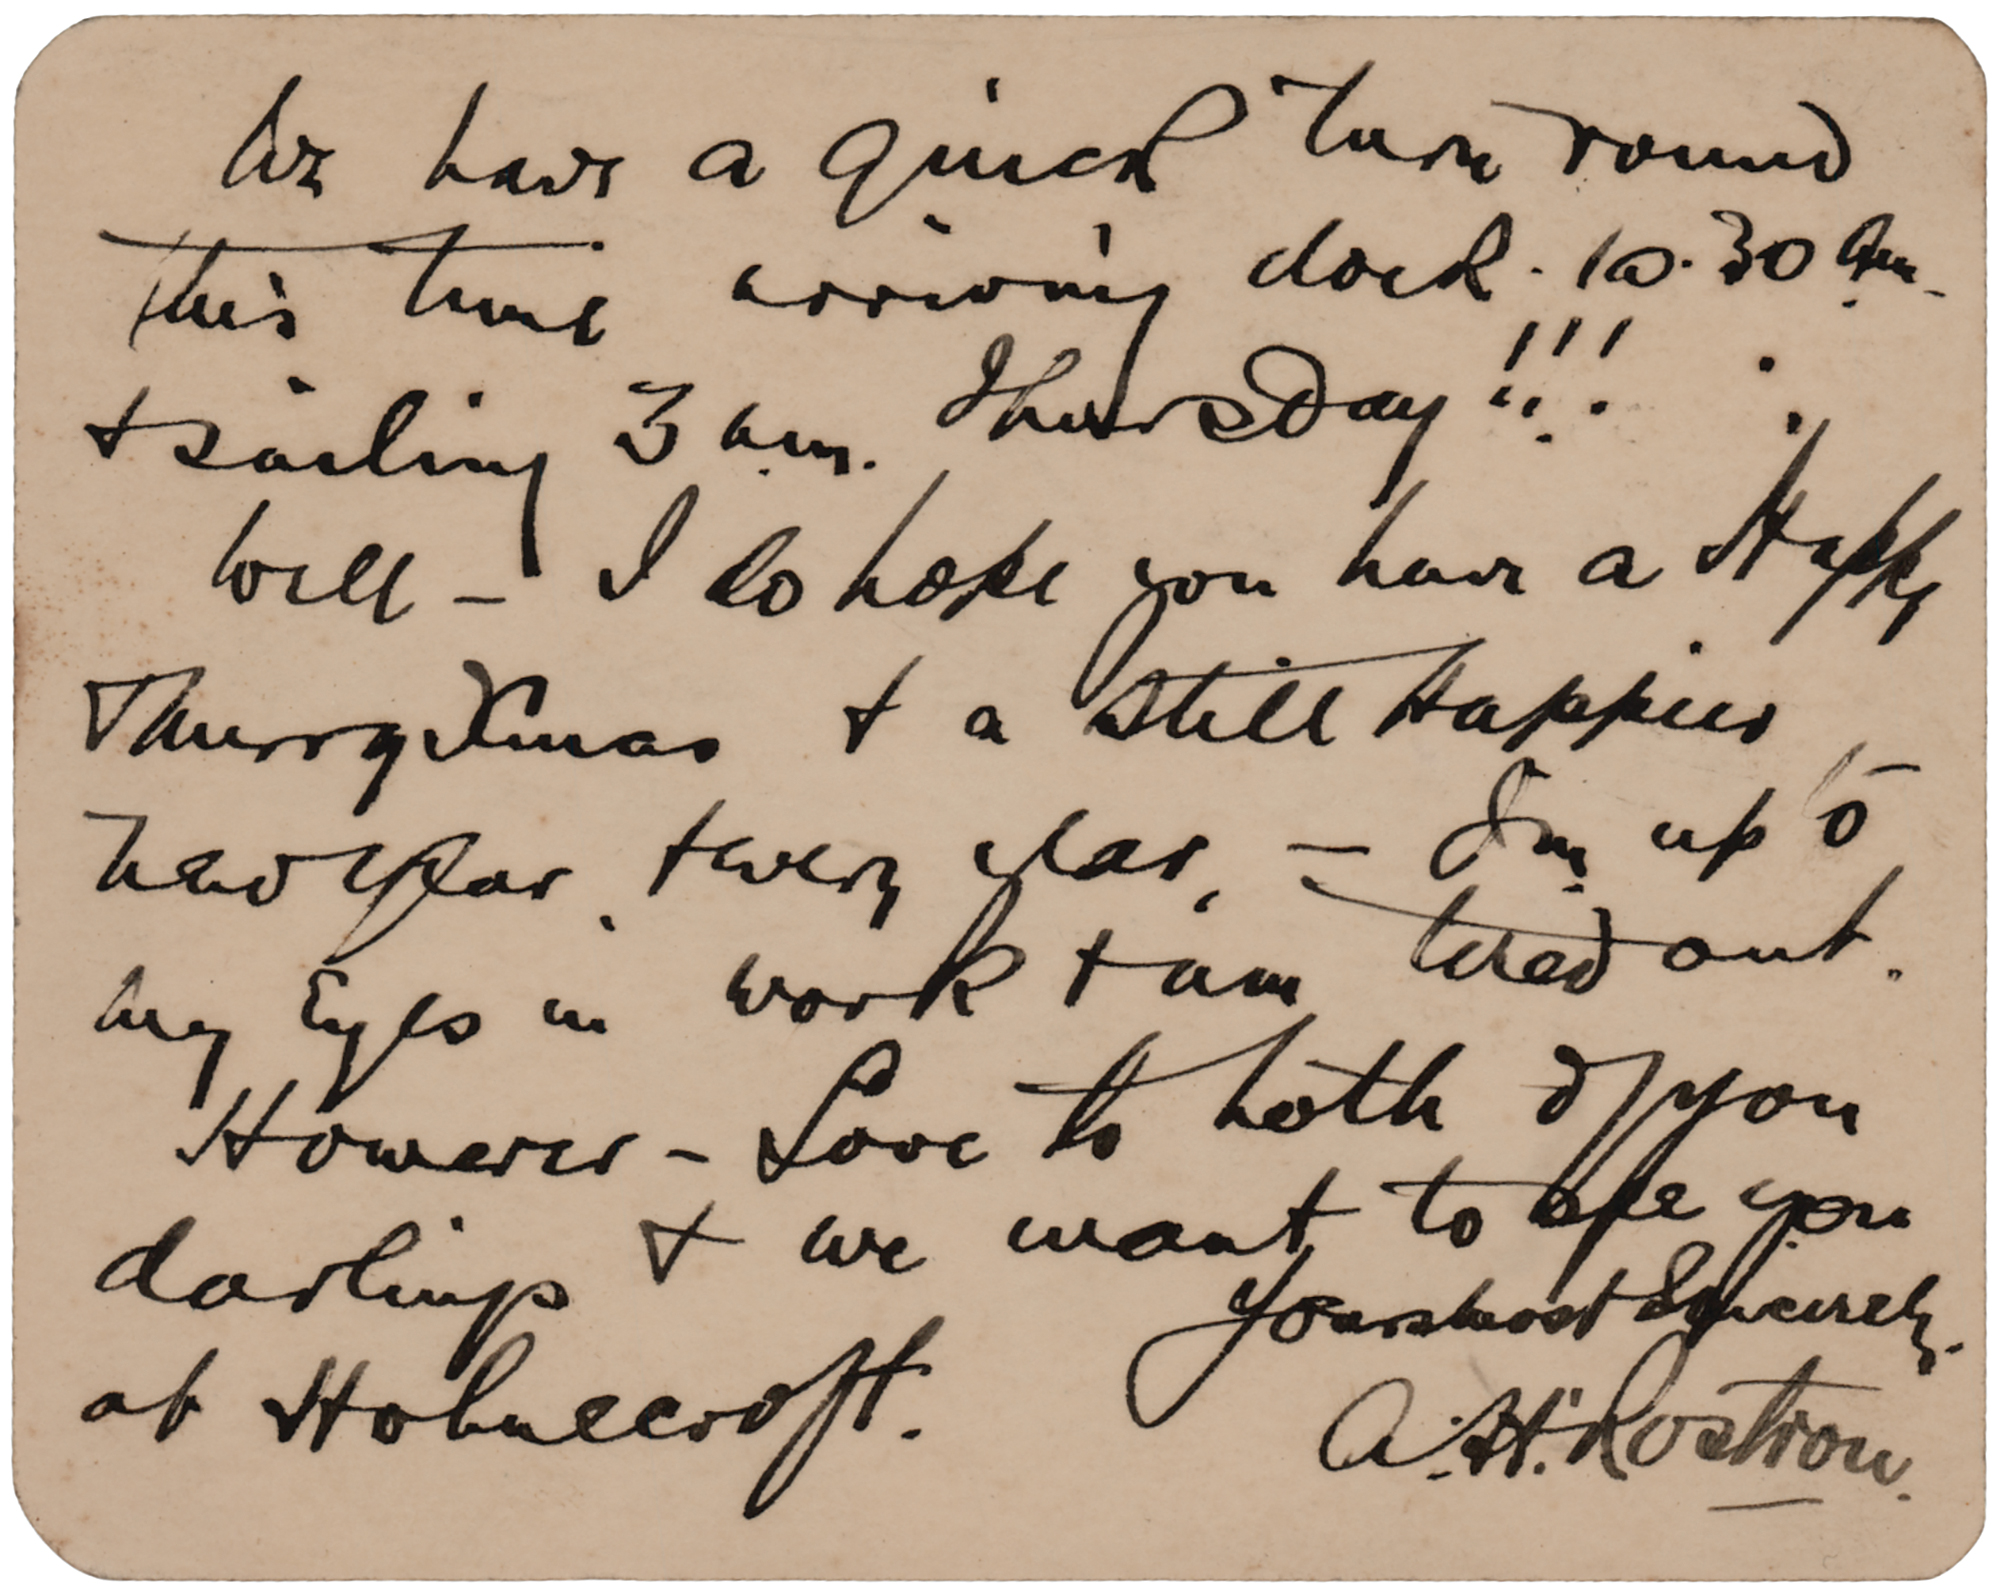 We have a quick turn round
this time arriving dock. 10.30 am.
+ sailing 3 a.m. Thursday!!!
Well - I do hope you have a Happy
Merry Xmas + a still Happier
New Year, + every year, - I'm up to
my Eyes in work + am tired out.
However - Love to both of you
darlings + we want to see you
at Holmecroft.
Yours most Sincerely.
A.H. Rostron.